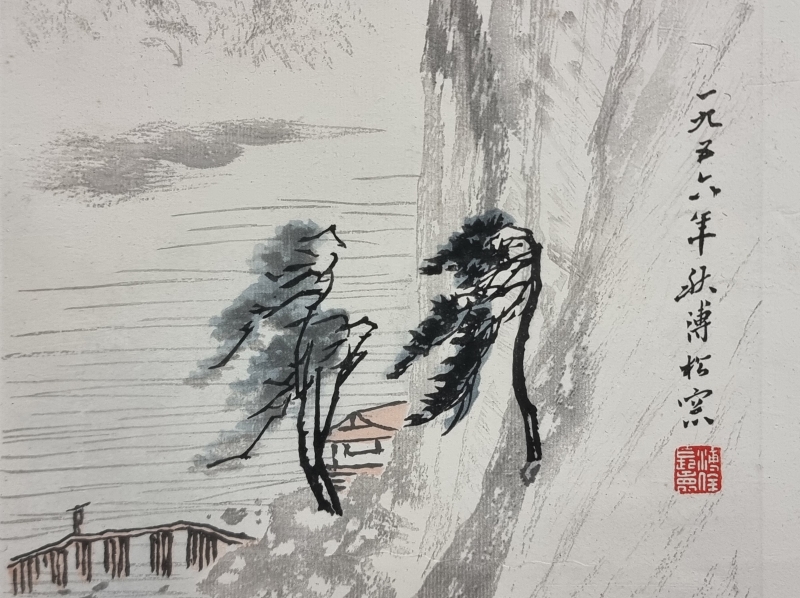 一九五六年秋溥松窗
溥佺